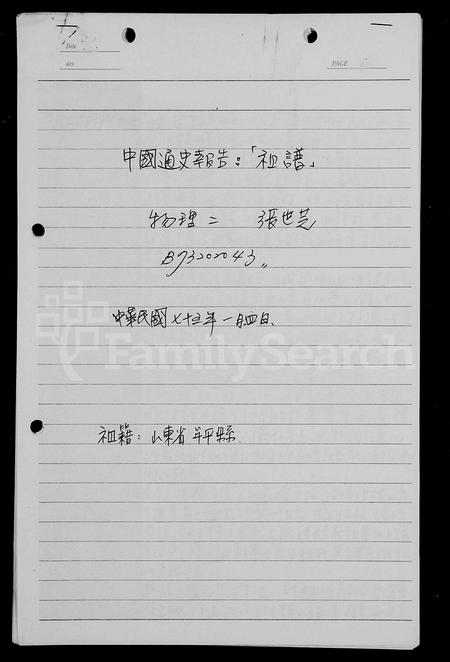 Date
day
PAGE
中國通史報告：「祖譜」
物理二 張世芸
B73202043
中華民國七十五年一月四日、
祖籍：山東省牟平縣
FamilySearch